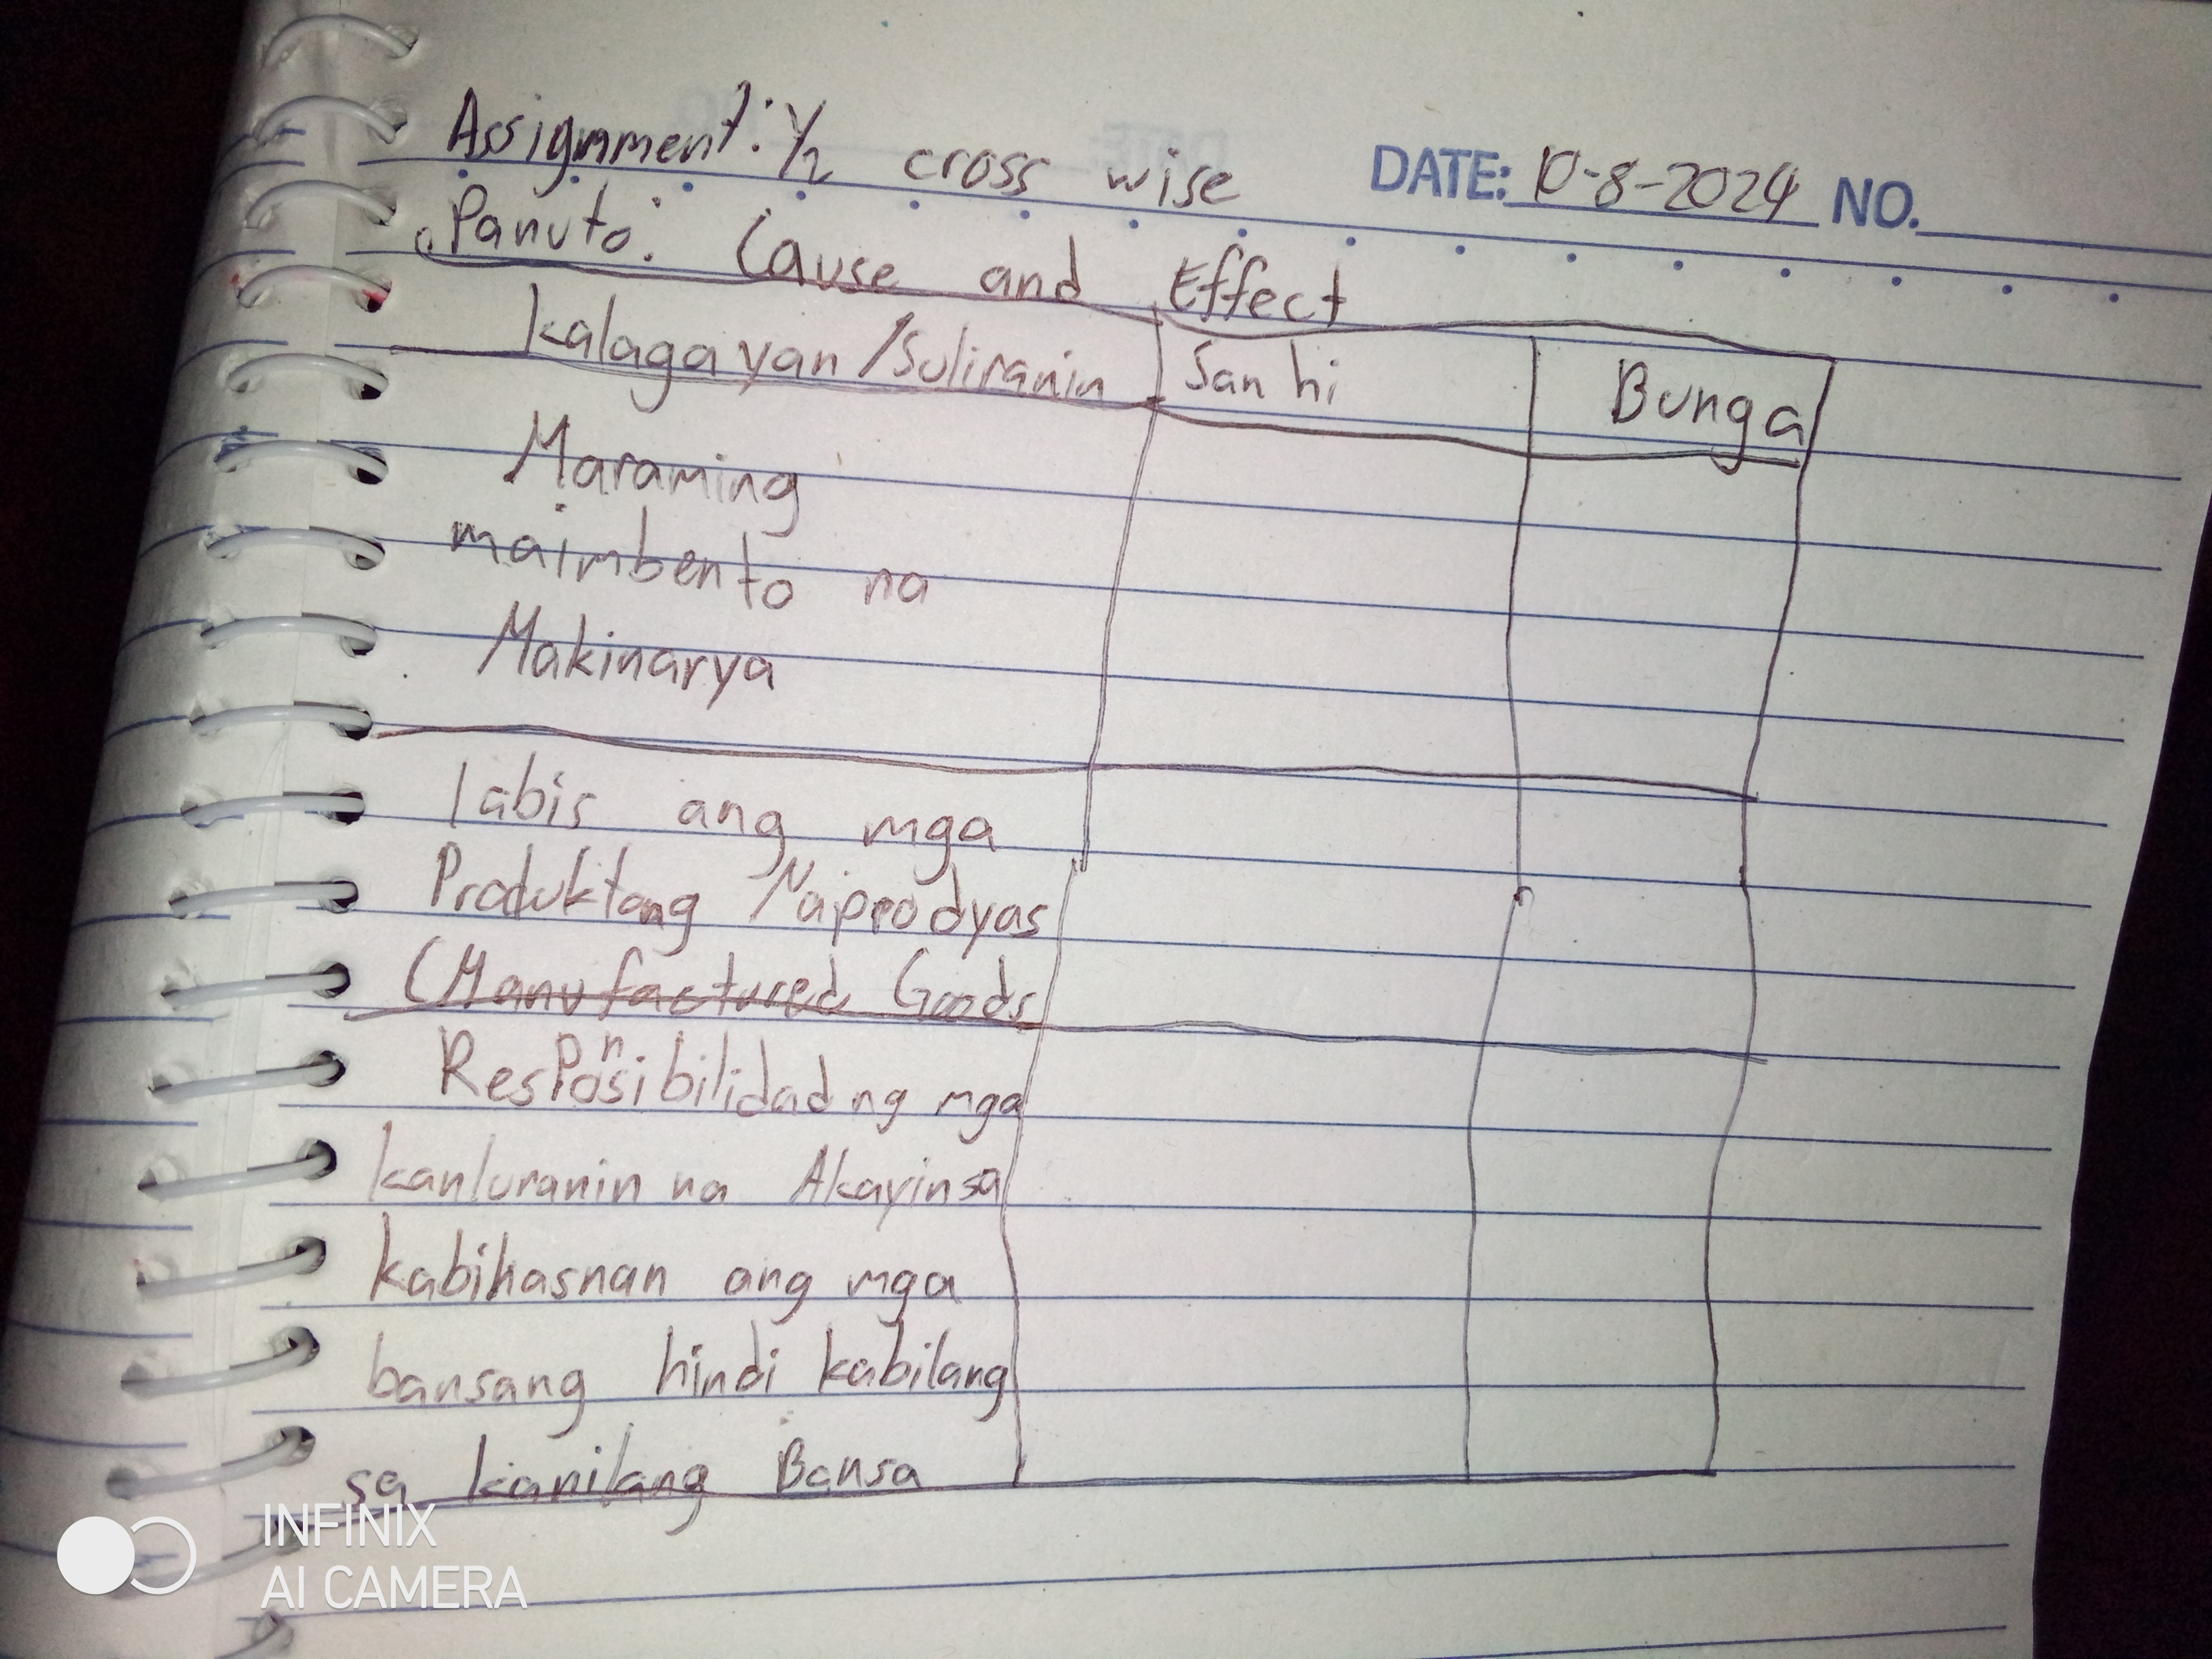 Assignment: 1/2 cross wise
DATE: 10-8-2024 NO.
Panuto: Cause and Effect
Kalagayan/Suliranin Sanhi Bunga
Maraming
maimbento na
Makinarya
labis ang mga
Produktong Naiprodyas
(Manufactured Goods
Responsibilidad ng mga
kanluranin na Akayin sa
kabihasnan ang mga
bansang hindi kabilang
sa kanilang Bansa
INFINIX
AI CAMERA